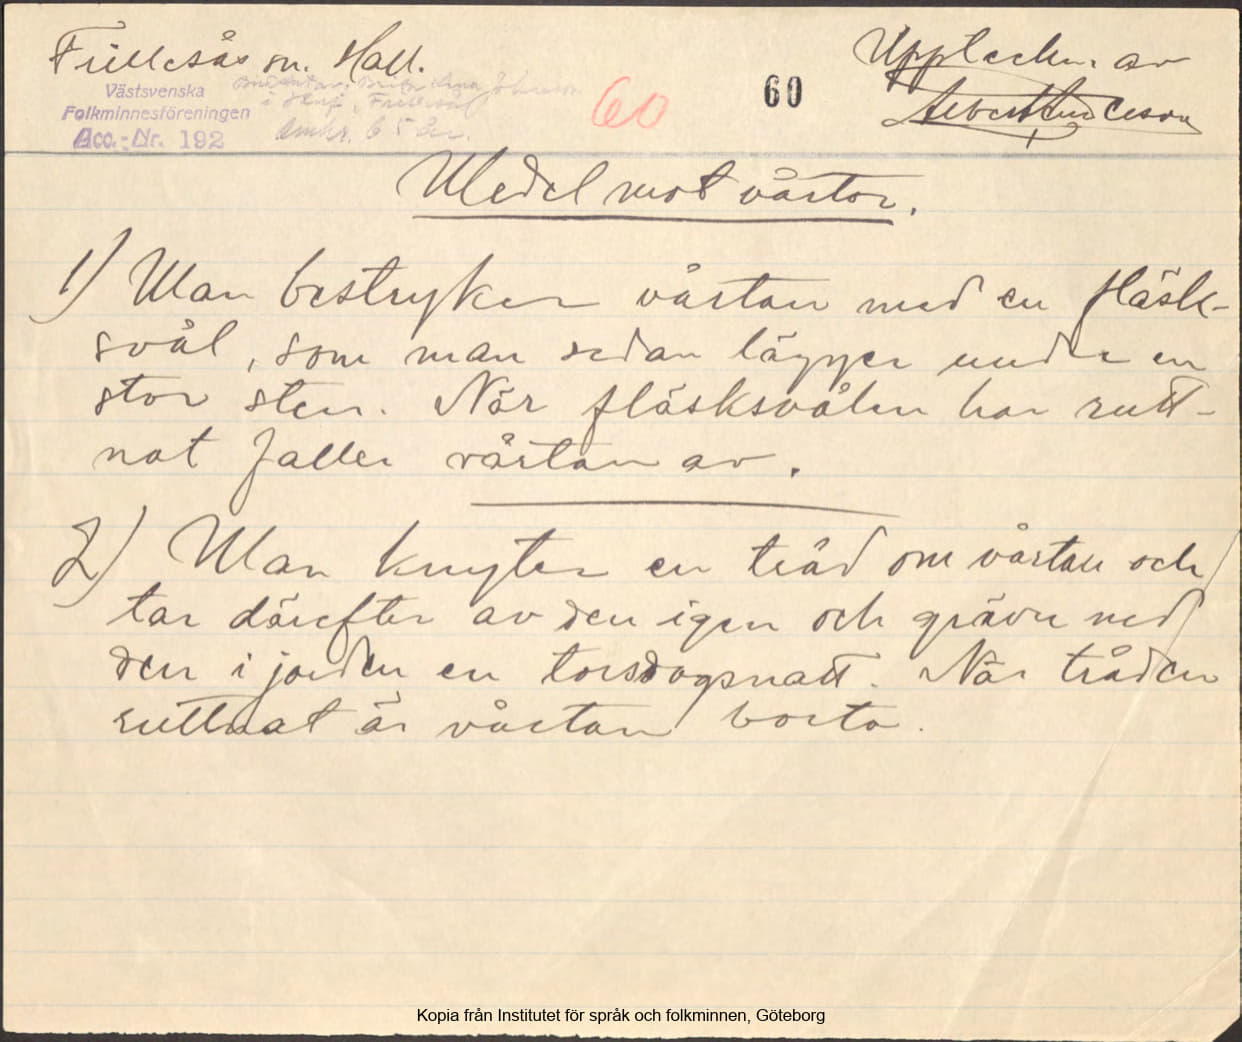 Frillesås sn. Hall.
Uppteckn 1 av
Albert Andreson
Västsvenska
Folkminnesföreningen
Acc.-Nr. 192
Frillesås
Omkr. 65 år.
60
60
Medel mot vårtor.
1) Man bestryker vårtan med en fläsk-
svål, som man sedan lägger under en
stor sten. När fläsksvålen har rutt-
nat faller vårtan av.
2) Man knyter en tråd om vårtan och
tar därefter av den igen och gräver ned
den i jorden en torsdagsnatt. När tråden
ruttnat är vårtan borta.
Kopia från Institutet för språk och folkminnen, Göteborg